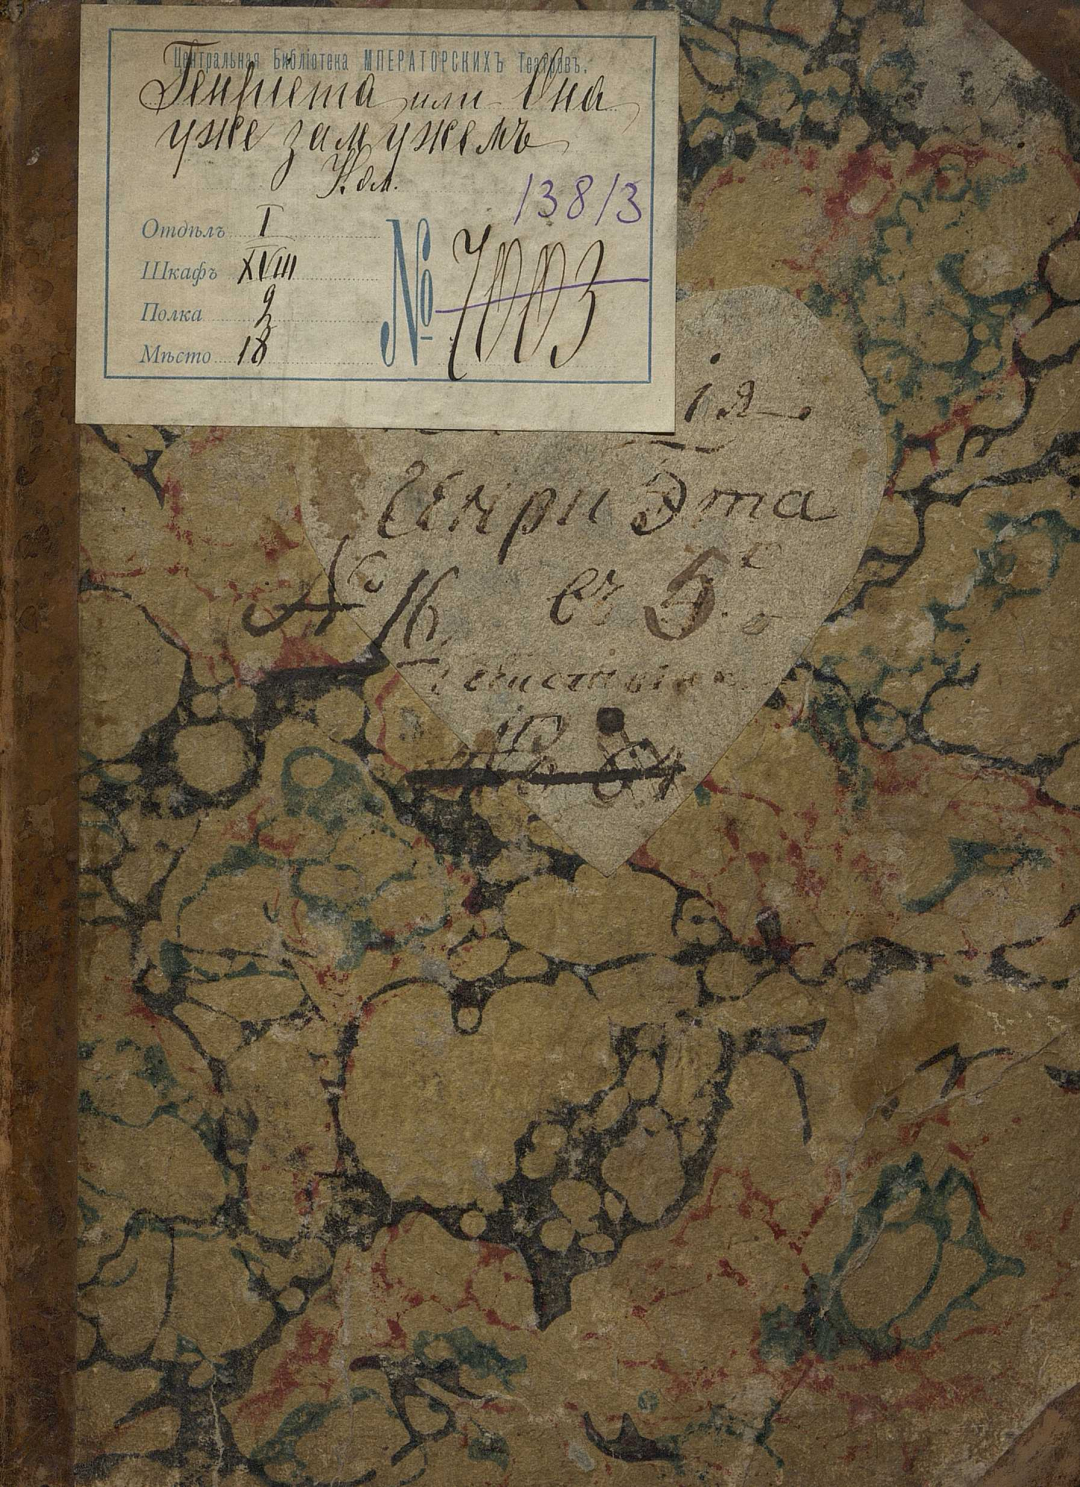 Центральная Библіотека ИМПЕРАТОРСКИХЪ Театровъ.
Генріета или Она
уже замужемъ
Ком.
13813
Отдѣлъ I
Шкафъ XVIII
Полка 2
Мѣсто 18
№ 7003
ія.
генриэта
№ 16 въ 5.
действіяхъ
№ 64